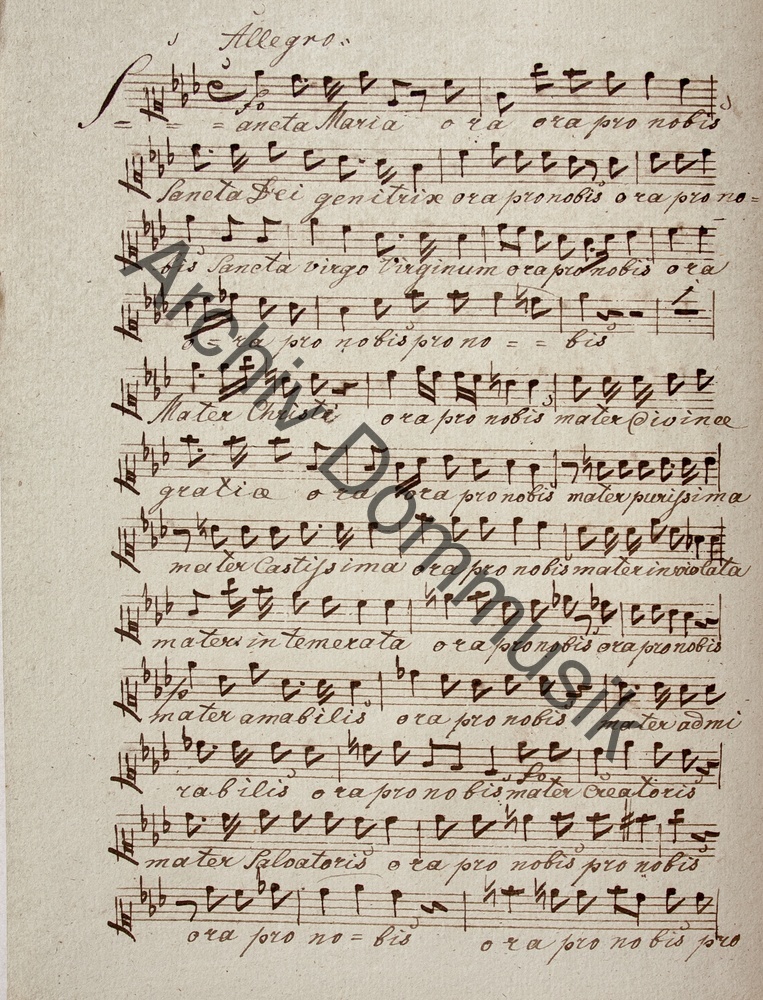 Allegro.
Sancta Maria ora ora pro nobis
Sancta Dei genitrix ora pro nobis ora pro no=
bis Sancta virgo Virginum ora pro nobis ora
o = ra pro nobis pro no = = bis
Mater Christi ora pro nobis mater Divinae
gratiae ora ora pro nobis mater purissima
mater Castissima ora pro nobis mater inviolata
mater intemerata ora pro nobis ora pro nobis
mater amabilis ora pro nobis mater admi
rabilis ora pro nobis mater Creatoris
mater Salvatoris ora pro nobis pro nobis
ora pro no = bis ora pro nobis pro
Archiv Dommusik